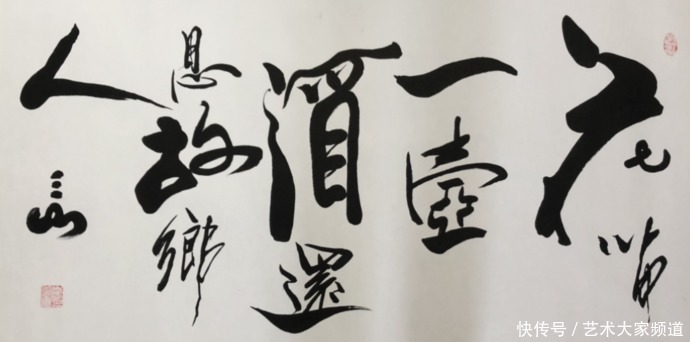 花間
一壺
酒還
思故鄉
人
快传号 / 艺术大家频道